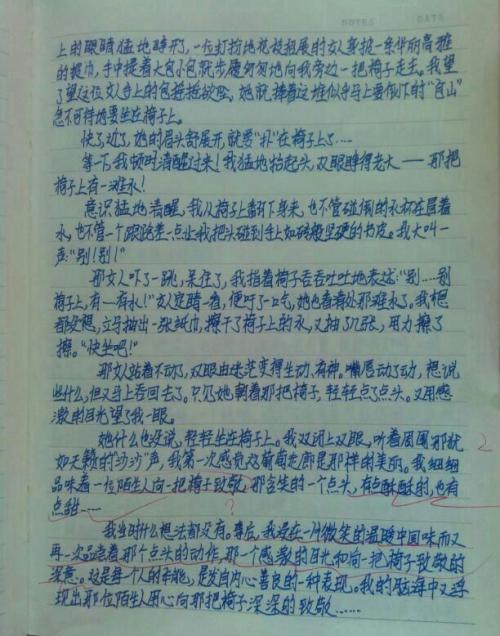 NOTES DATE
上的眼睛猛地睁开,一位打扮地花枝招展的女人身披一条华丽高雅
的披巾,手中提着大包小包就步履匆匆地向我旁边一把椅子走去。我望
了望这位女人手上的包摇摇欲坠。她就捧着这堆似乎马上要倒下的“包山”
急不可待地要坐在椅子上。
快了近了,她的眉头舒展开,就要“扑”在椅子上了……
等一下,我顿时清醒过来!我猛地抬起头,双眼睁得老大——那把
椅子上有一滩水!
意识猛地清醒,我从椅子上翻下身来,也不管碰倒的水杯在冒着
水,也不管一个踉跄差一点让我把头碰到手上如砖般坚硬的书皮。我大叫一
声:“别!别!”
那女人吓了一跳,呆住了,我指着椅子吞吞吐吐地表述:“别……别
椅子上,有—有水!”女人定睛一看,便吁了一口气,她也看着处那滩水了。我想
都没想,立马抽出一张纸巾,擦干了椅子上的水,又抽了几张,用力擦了
擦。“快坐吧!”
那女站着不动了,双眼由迷茫变得生动、有神。嘴唇动了动,想说
些什么,但又马上吞回去了。只见她朝着那把椅子,轻轻点了点头。又用感
激的目光望了我一眼。
她什么也没说,轻轻坐在椅子上。我双闭上双眼,听着周围那犹
如天籁的“沙沙”声,我第一次感觉这葡萄走廊是那样的美丽。我细细
品味着一位陌生人向一把椅子致敬,那含笑的一个点头,有点酥酥的,也有
点甜……
我当时什么想法都没有。事后,我浸在一片微笑的温暖中回味而又
再一次品意着那个点头的动作,那一个感激的目光和向一把椅子致敬的
深意。这是每个人的本能,是发自内心善良的一种表现。我的脑海中又浮
现出那位陌生人用心向那把椅子深深的致敬……
2
?